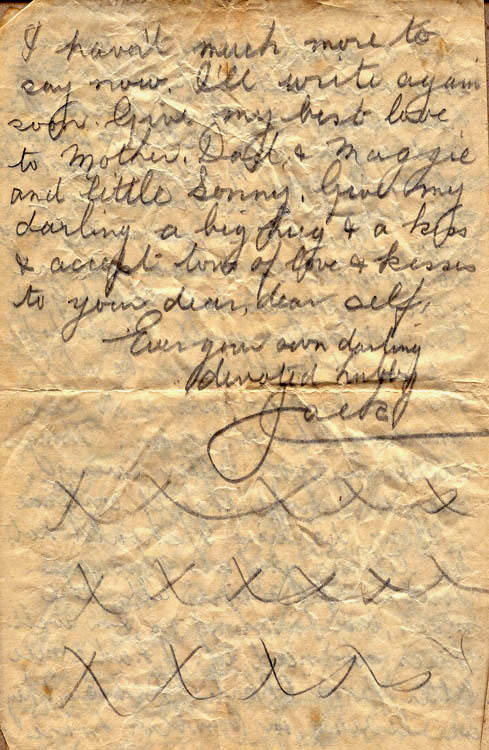 I haven't much more to
say now. I'll write again
soon. Give my best love
to Mother, Dad, & Maggie
and little Sonny. Give my
darling a big hug & a kiss
& accept tons of love & kisses
to your dear, dear self,
Ever your own darling
devoted hubby
Jack
x x x x x x
x x x x x x
x x x x x